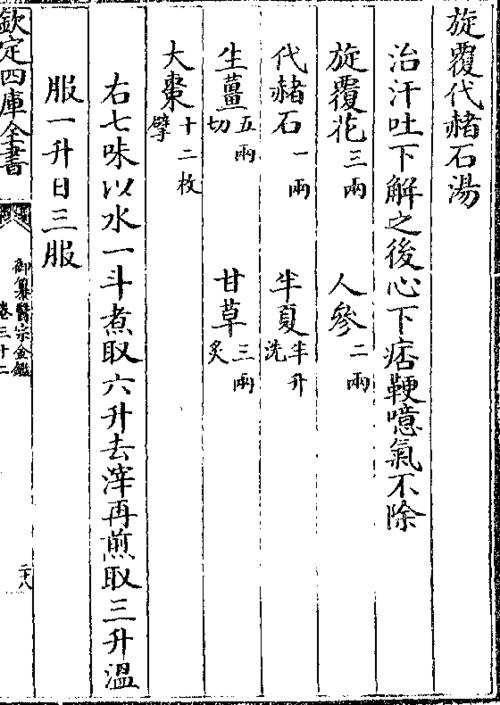 旋覆代赭石湯
治汗吐下解之後心下痞鞕噫氣不除
旋覆花三兩 人參二兩
代赭石一兩 半夏半升洗
生薑五兩切 甘草三兩炙
大棗十二枚擘
右七味以水一斗煮取六升去滓再煎取三升溫
服一升日三服
欽定四庫全書
御纂醫宗金鑑
卷三十二
二十八